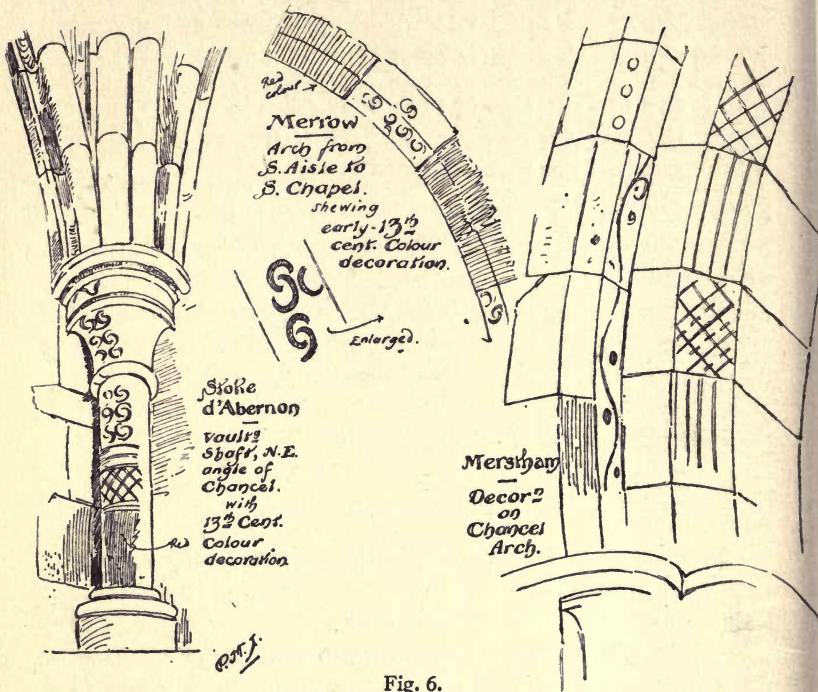 Red
colour
Merrow
Arch from
S. Aisle to
S. Chapel.
shewing
early-13th
cent. Colour
decoration.
Enlarged.
Stoke
d'Abernon
Vaultg
Shaft, N.E.
angle of
Chancel.
with
13th Cent.
Red Colour
decoration
Merstham
Decorn
on
Chancel
Arch.
P.M.J.
Fig. 6.